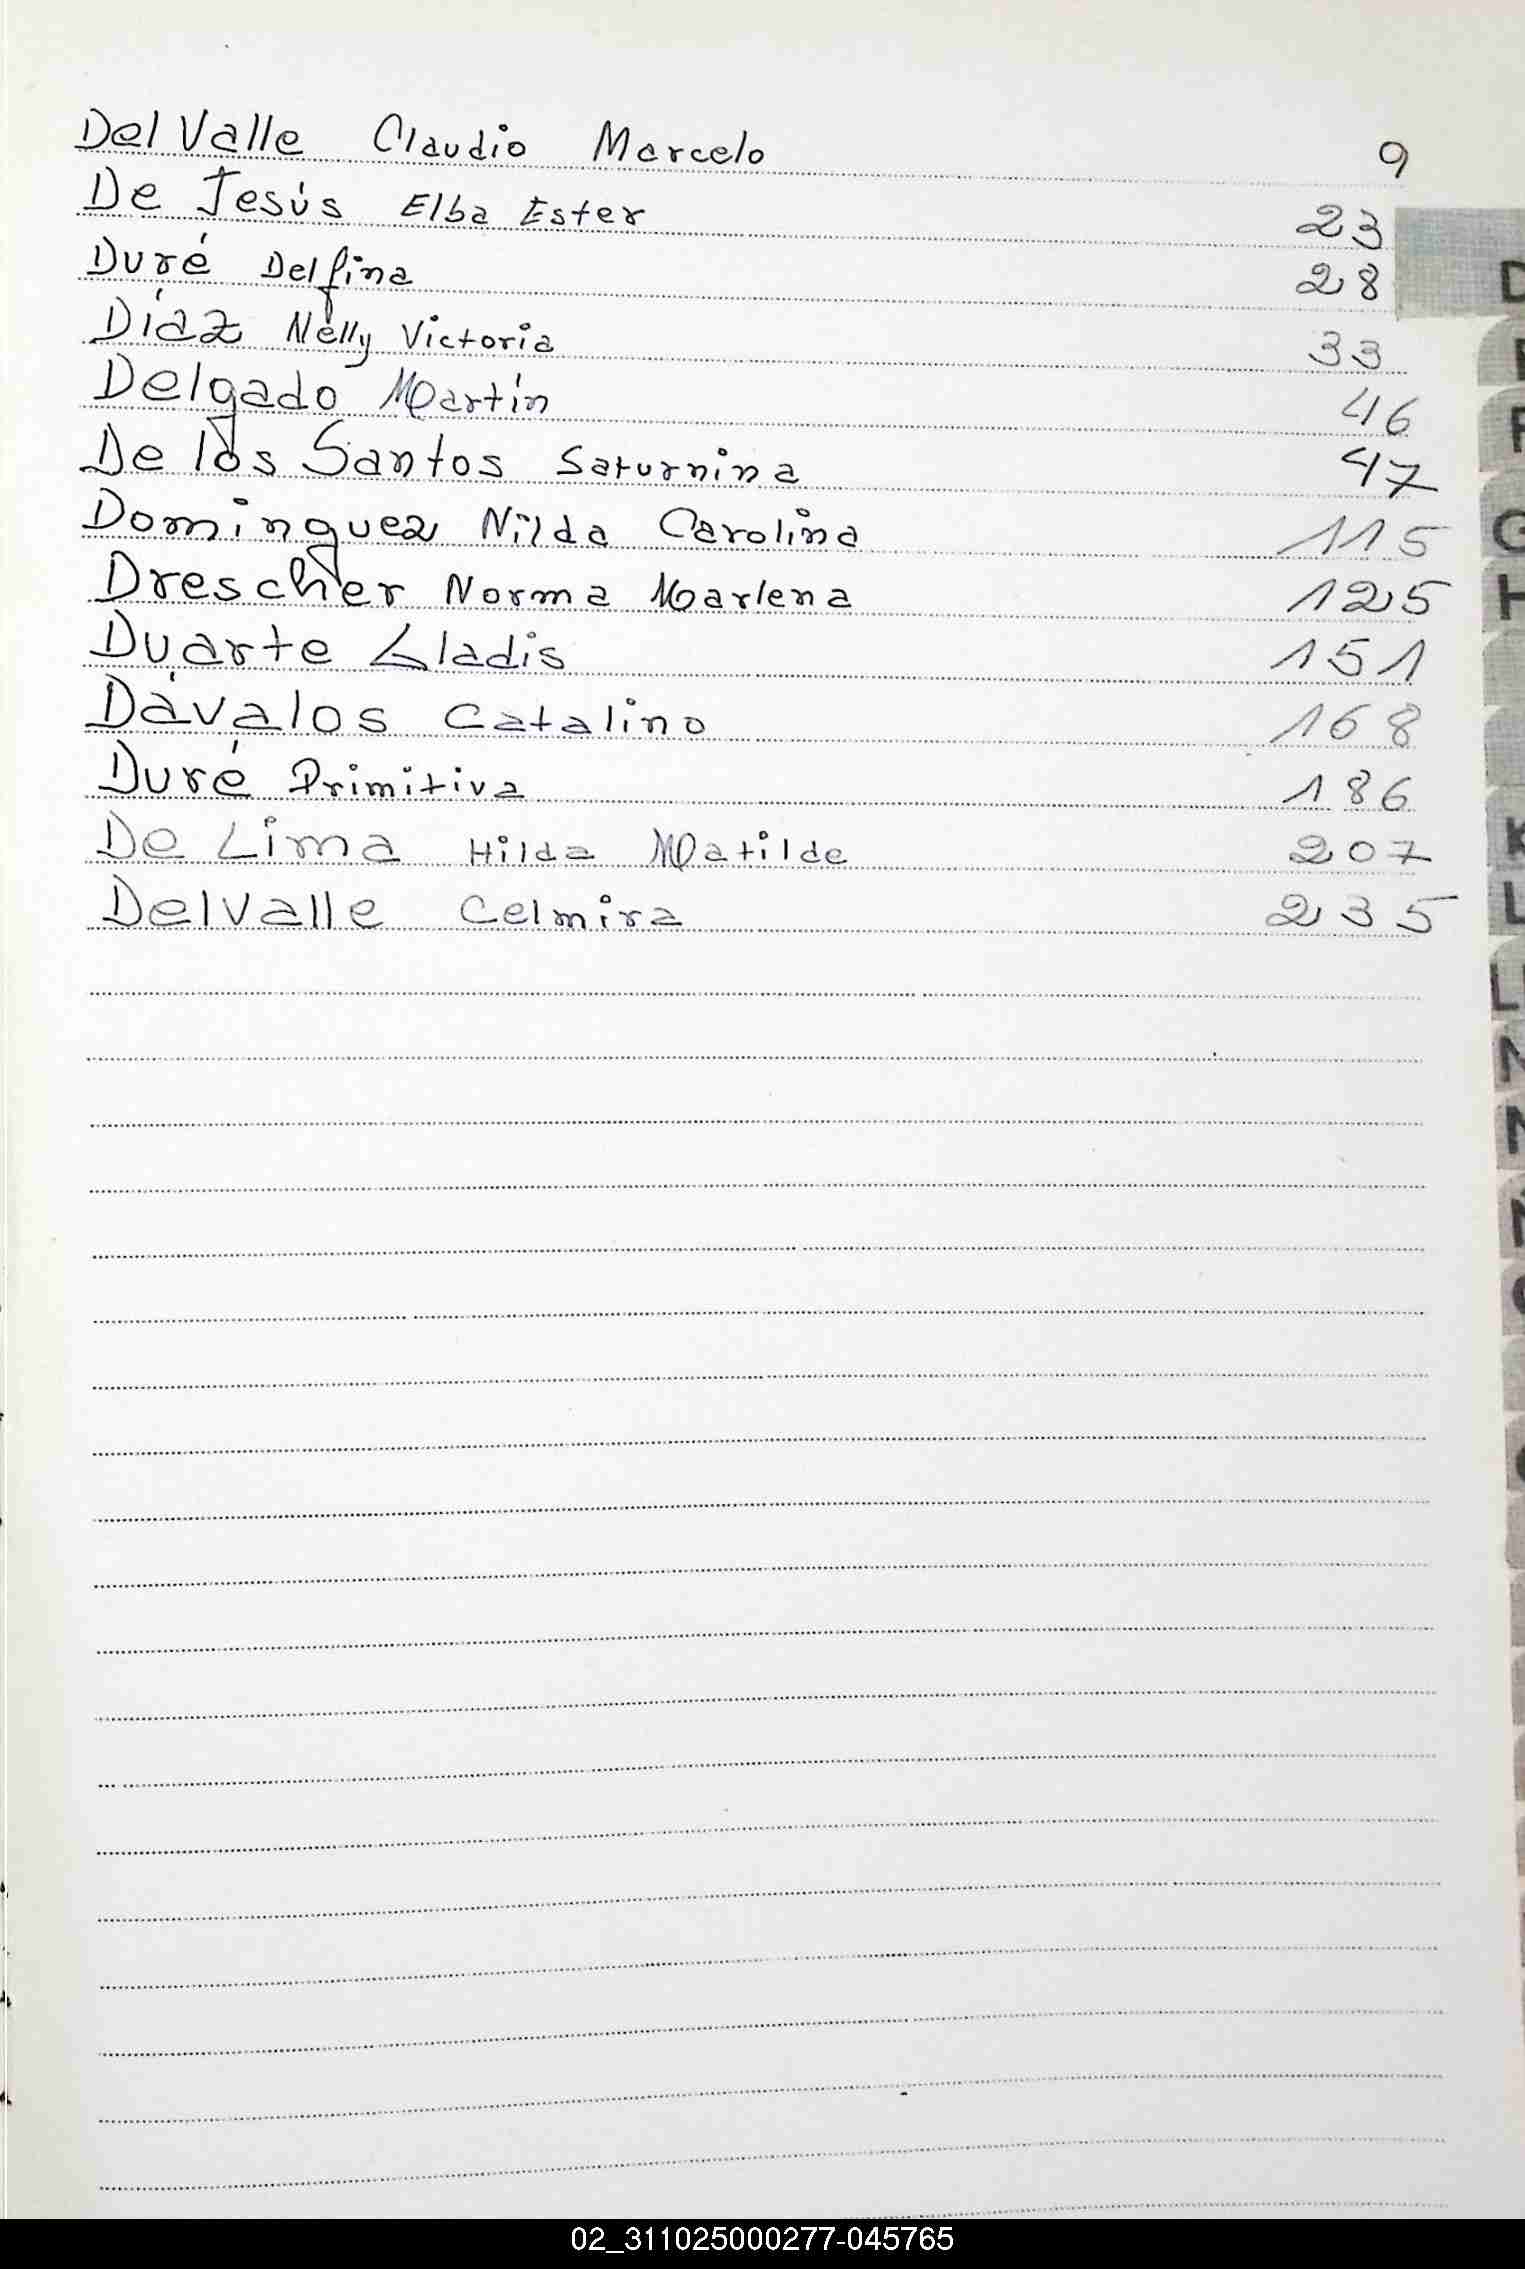 Del Valle Claudio Marcelo 9
De Jesús Elba Ester 23
Duré Delfina 28
Díaz Nelly Victoria 33
Delgado Martín 46
De los Santos Saturnina 47
Dominguez Nilda Carolina 115
Drescher Norma Marlena 125
Duarte Gladis 151
Dávalos Catalino 168
Duré Primitiva 186
De Lima Hilda Matilde 207
Delvalle Celmira 235
D
F
G
H
K
L
LL
M
N
02_311025000277-045765